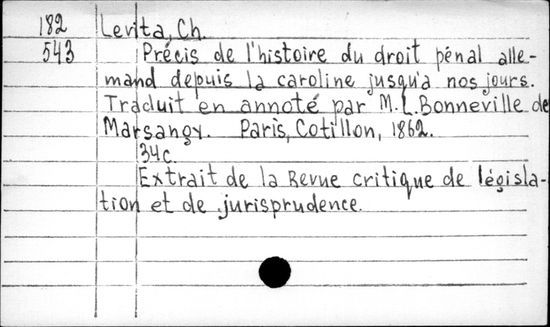 182 Levita, Ch.
543 Précis de l'histoire du droit pénal alle-
mand depuis la caroline jusqu'a nos jours.
Traduit en annoté par M. L. Bonneville de
Marsangy. Paris, Cotillon, 1862.
34c.
Extrait de la Revue critique de législa-
tion et de jurisprudence.